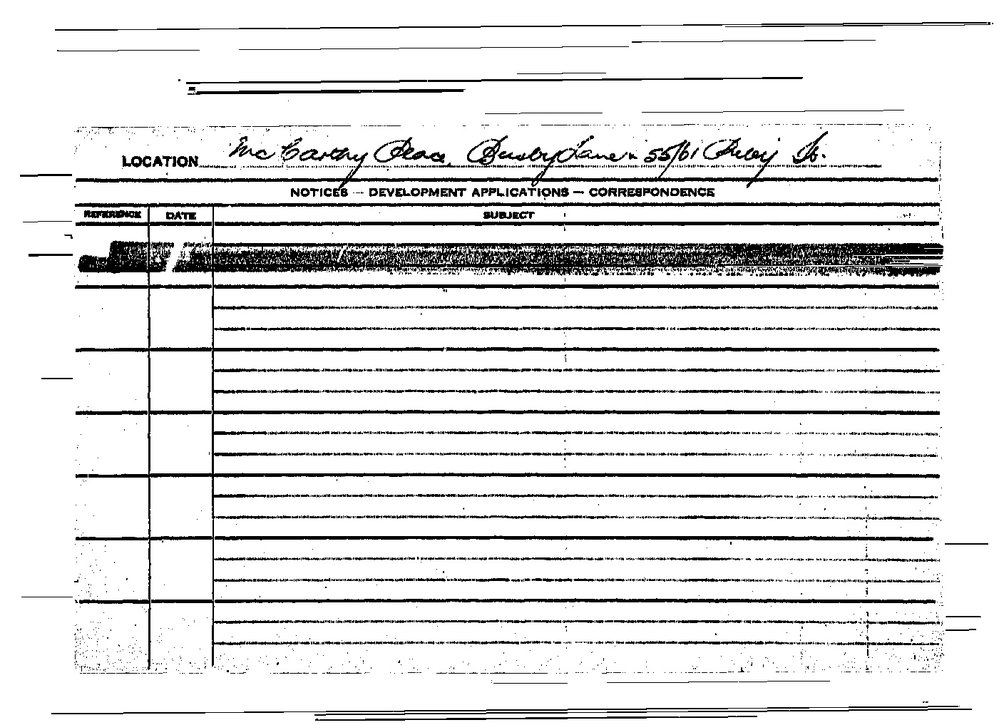 LOCATION Mc Carthy Place, Busby Lane & 55/61 St.
NOTICES — DEVELOPMENT APPLICATIONS — CORRESPONDENCE
REFERENCE DATE SUBJECT